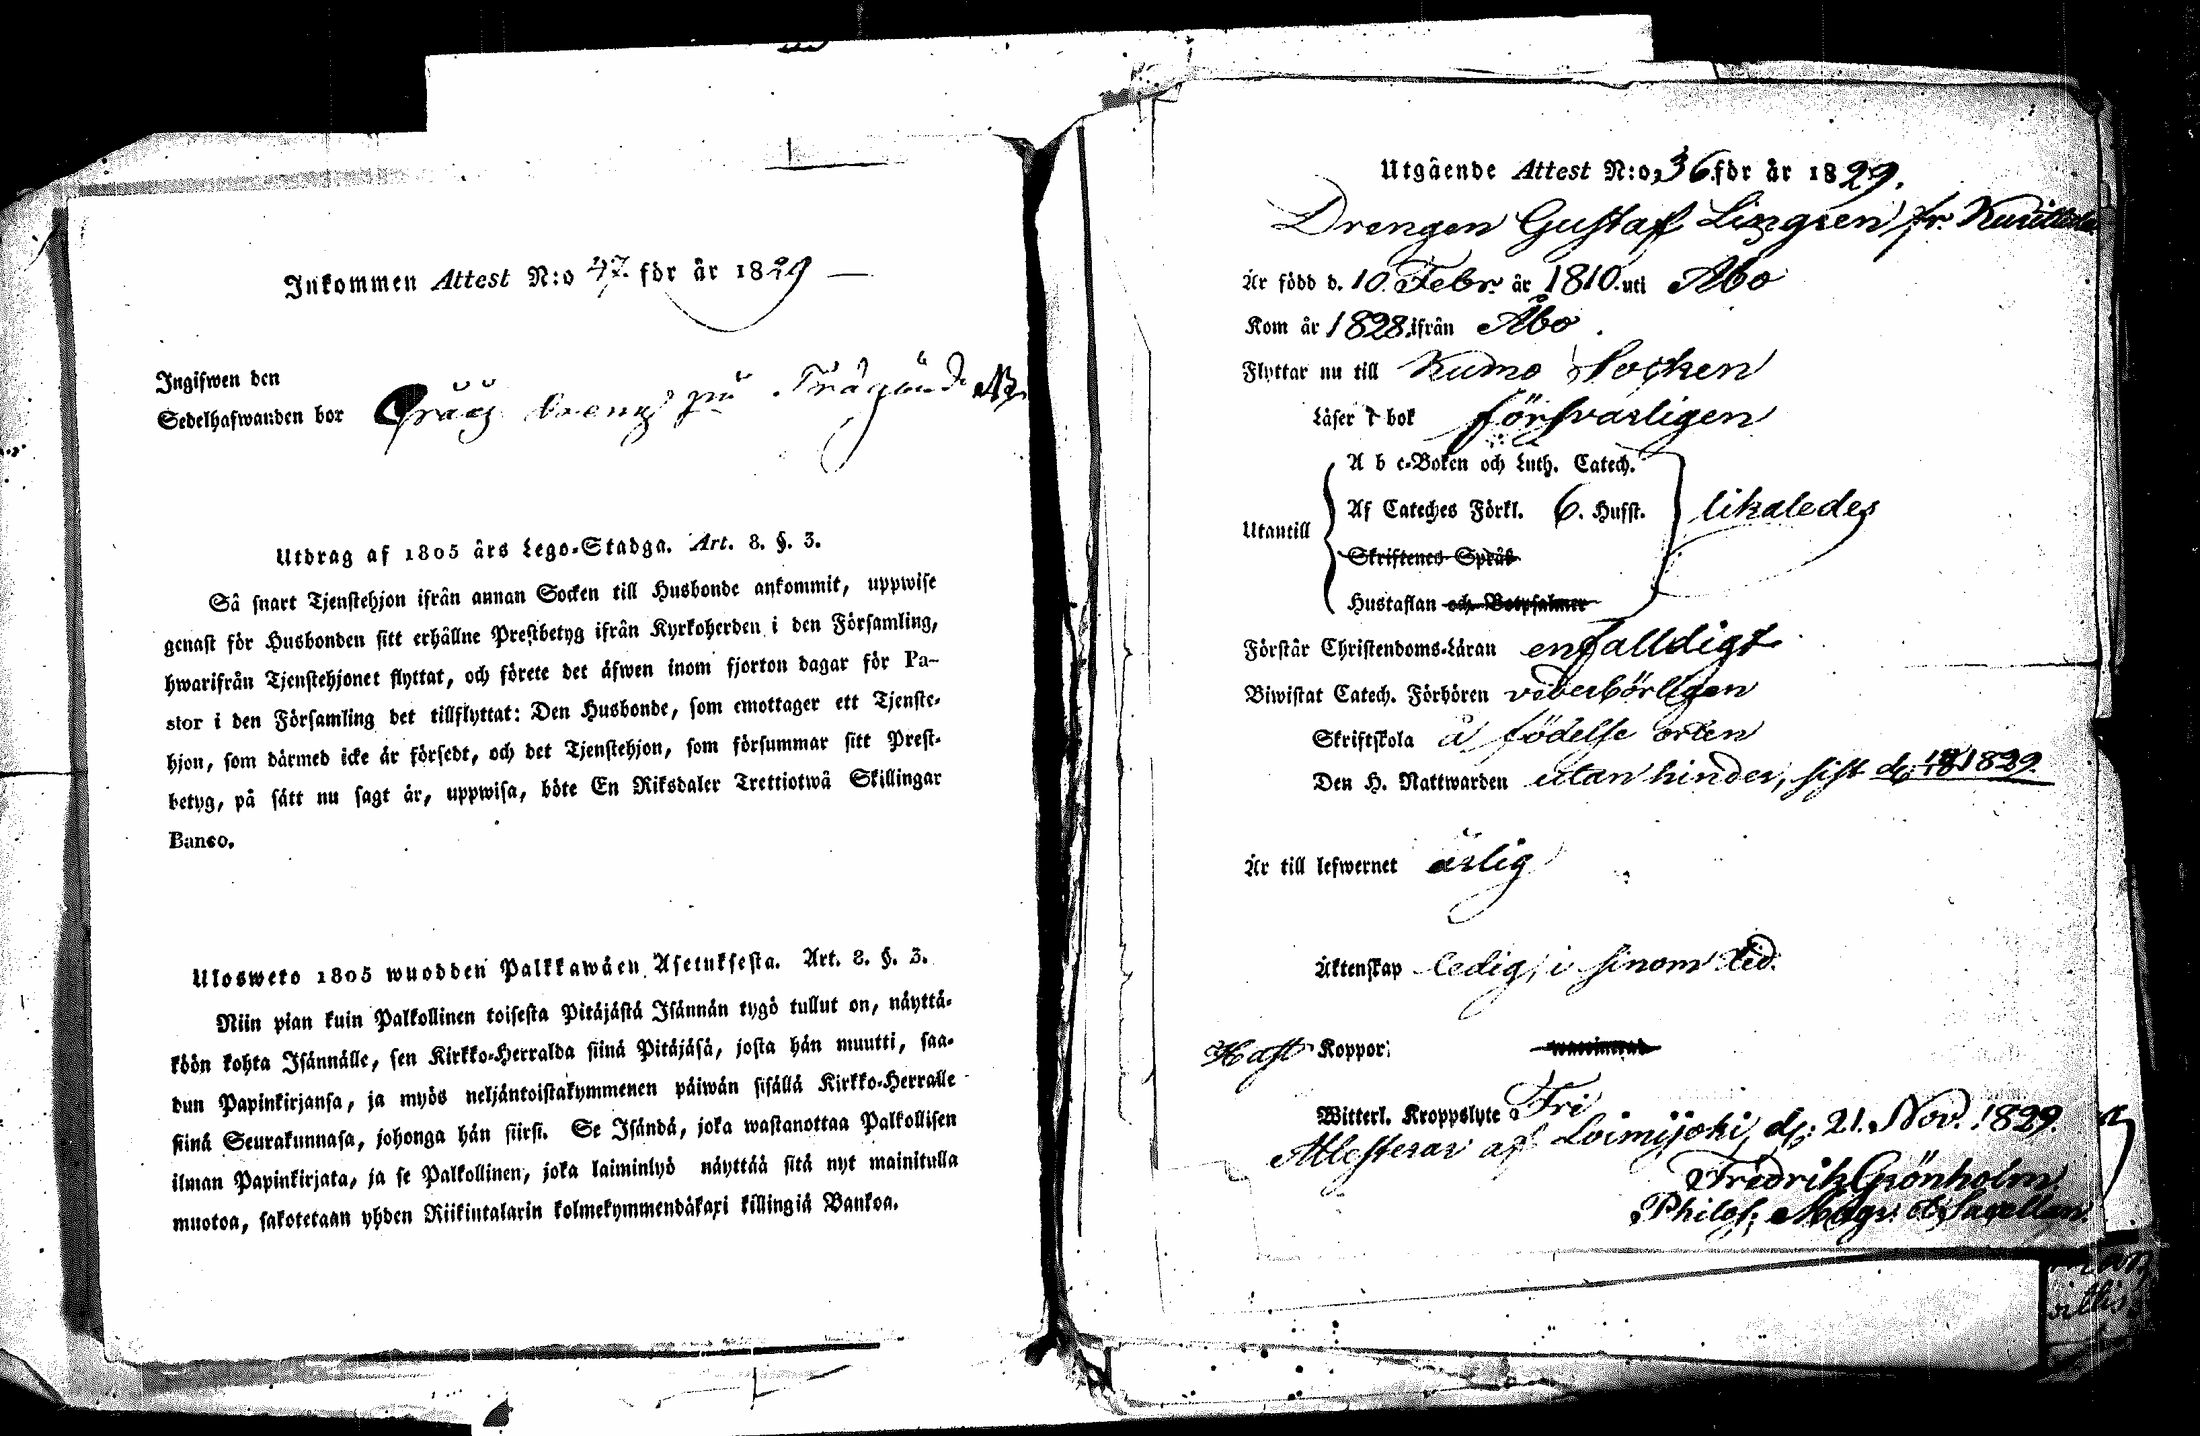 Inkommen Attest N:o 47. för år 1829
Ingifwen den
Sedelhafwanden bor på
Utdrag af 1805 års Lego-Stadga. Art. 8. §. 3.
Så snart Tjenstehjon ifrån annan Socken till Husbonde ankommit, uppwise
genast för Husbonden sitt erhållne Prestbetyg ifrån Kyrkoherden i den Församling,
hwarifrån Tjenstehjonet flyttat, och förete det äfwen inom fjorton dagar för Pa-
stor i den Församling det tillflyttat: Den Husbonde, som emottager ett Tjenste-
hjon, som därmed icke är försedt, och det Tjenstehjon, som försummar sitt Prest-
betyg, på sätt nu sagt är, uppwisa, böte En Riksdaler Trettiotwå Skillingar
Banco.
Ulosweto 1805 wuodden Palkkawäen Asetuksesta. Art. 8. §. 3.
Niin pian kuin Palkollinen toisesta Pitäjästä Isännän tygö tullut on, näyttä-
köön kohta Isännälle, sen Kirkko-Herralda siinä Pitäjäsä, josta hän muutti, saa-
dun Papinkirjansa, ja myös neljäntoistakymmenen päiwän sisällä Kirkko-Herralle
siinä Seurakunnasa, johonga hän siirsi. Se Isändä, joka wastanottaa Palkollisen
ilman Papinkirjata, ja se Palkollinen, joka laiminlyö näyttää sitä nyt mainitulla
muotoa, sakotetaan yhden Riikintalarin kolmekymmendäkaxi killingiä Bankoa.
Utgående Attest N:o 36 för år 1829.
Drengen Gustaf Lingren fr.
Är född d. 10. Febr. år 1810. uti Åbo
Kom år 1828. ifrån Åbo.
Flyttar nu till Kumo Socken
Läser i bok försvarligen
A b c-Boken och Luth. Catech.
Af Cateches Förkl. 6. Hufst. likaledes
Utantill
Skriftenes Språk
Hustaflan och Botpsalmer
Förstår Christendoms-Läran enfalldigt
Biwistat Catech. Förhören vederbörligen
Skriftskola å födelse orten
Den H. Nattwarden utan hinder, sist d. 1829.
Är till lefwernet ärlig
Äktenskap ledig, i sinom tid.
Haft Koppor:
Witterl. Kroppslyte Fri
Attesterar af Loimijoki, d: 21. Nov. 1829.
Fredrik Grönholm
Philos: Magr. et Sacellan.